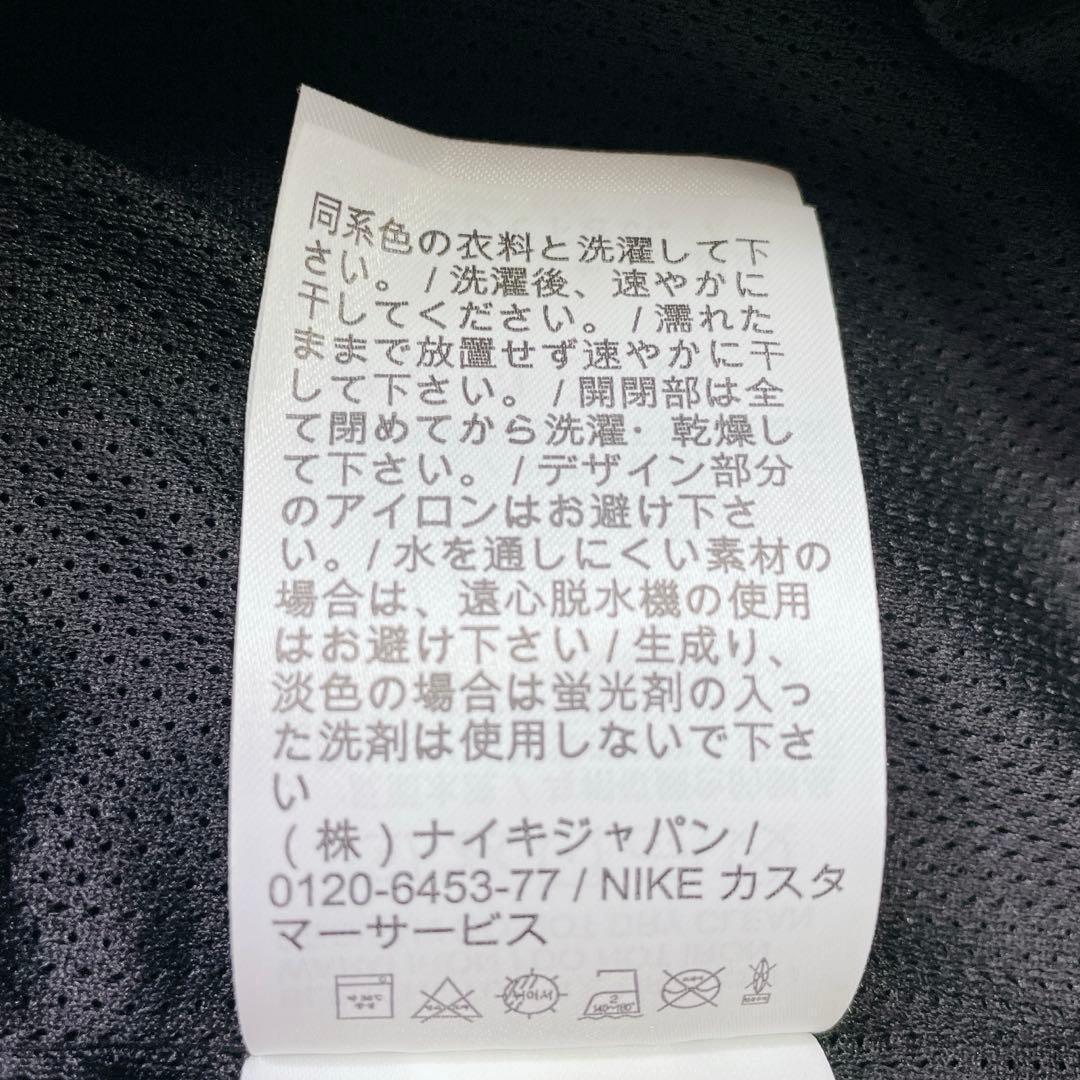 同系色の衣料と洗濯して下
さい。/洗濯後、速やかに
干してください。/濡れた
ままで放置せず速やかに干
して下さい。/開閉部は全
て閉めてから洗濯・乾燥し
て下さい。/デザイン部分
のアイロンはお避け下さ
い。/水を通しにくい素材の
場合は、遠心脱水機の使用
はお避け下さい/生成り、
淡色の場合は蛍光剤の入っ
た洗剤は使用しないで下さ
い
(株)ナイキジャパン/
0120-6453-77/NIKE カスタ
マーサービス